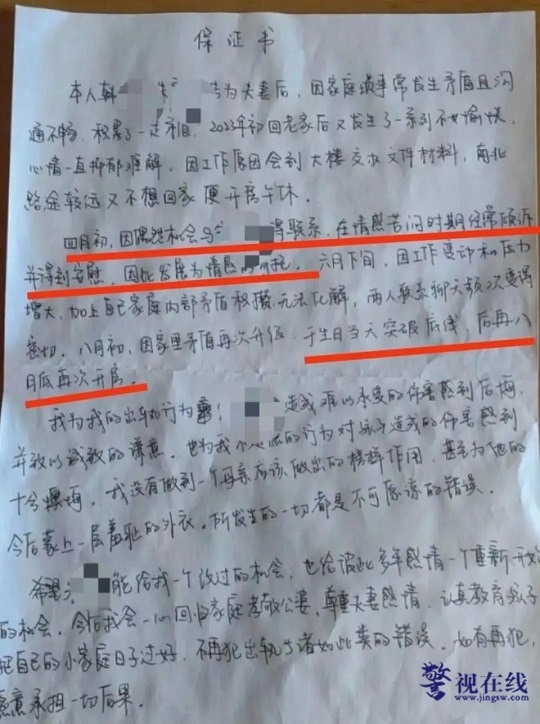 保证书
本人韩 与 为夫妻后，因家庭琐事常发生矛盾且沟
通不畅，积累了一定矛盾。2023年初回老家后又发生了一系列不愉快，
心情一直抑郁难解，因工作原因会到大楼交收文件材料，南北
路途较远又不想回家便开房午休。
四月初，因偶然机会与 取得联系，在情感苦闷时期经常倾诉
并得到安慰，因此发展为情感 。六月下旬，因工作变动和压力
增大，加上自己家庭内部矛盾积攒无法化解，两人联系聊天频次变得
密切。八月初，因家里矛盾再次升级，于生日当天突破底线，后再八
月底再次开房。
我为我的出轨行为 造成难以承受的伤害感到后悔
并致以诚挚的歉意，也为我 的行为对孩子造成的伤害感到
十分 悔，我没有做到一个母亲应该做出的榜样作用，甚至为他的
今后蒙上一层羞耻的外衣。所发生的一切都是不可原谅的错误。
希望 能给我一个改过的机会，也给彼此多年感情一个重新开始
的机会。今后我会一心回归家庭孝敬公婆，尊重夫妻感情，认真教育孩子
把自己的小家庭日子过好，不再犯出轨 诸如此类的错误，如有再犯，
愿意承担一切后果。
警视在线
www.jingsw.com